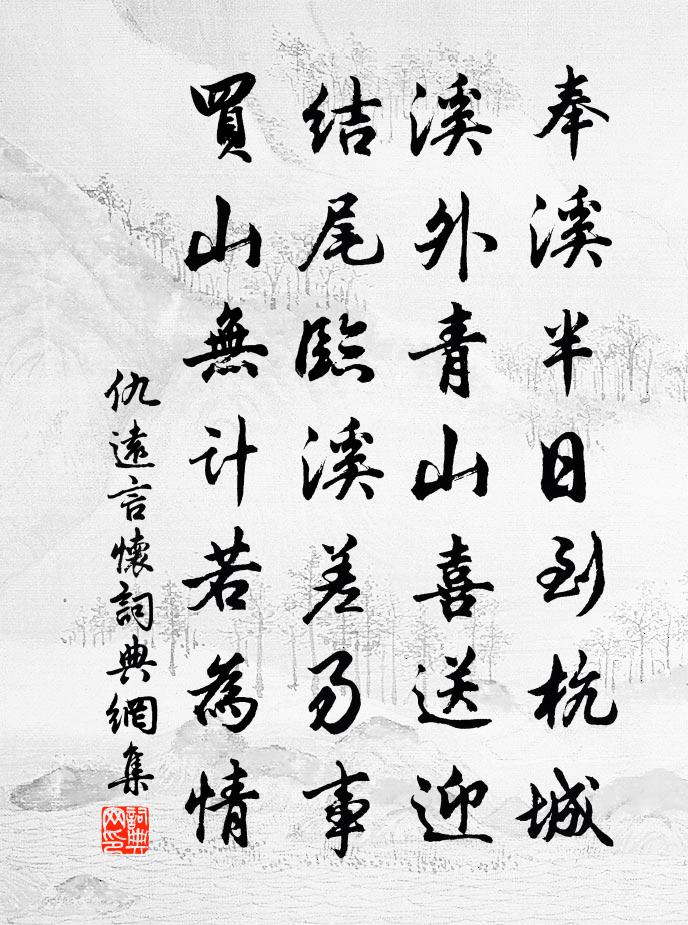 奉溪半日到杭城
溪外青山喜送迎
結尾臨溪差易事
買山無計若為情
仇遠言懷詞典網集
詞典网印